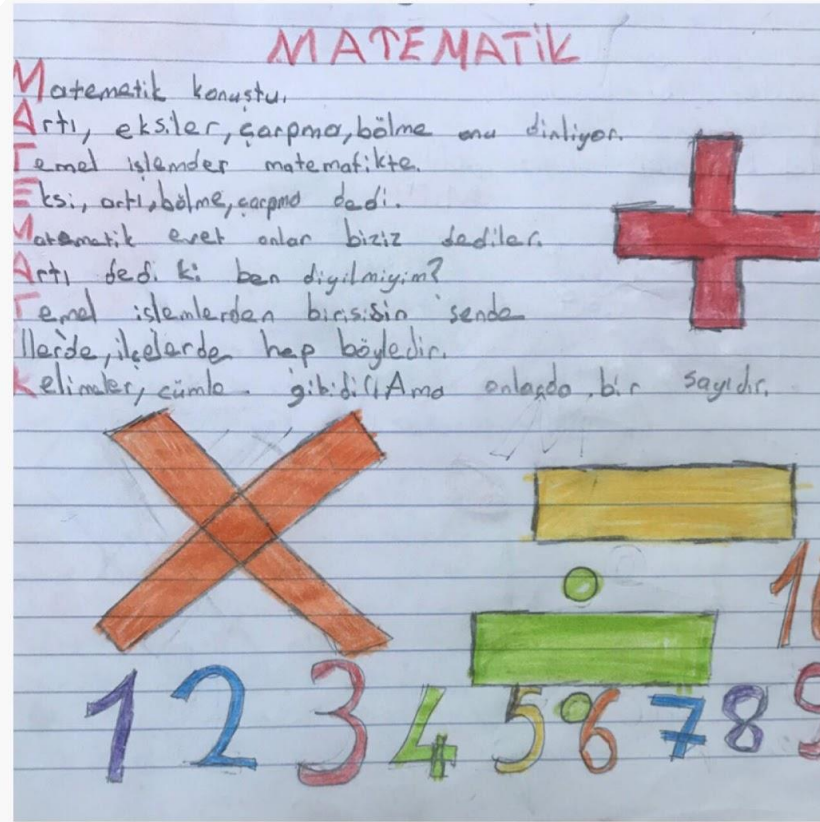 MATEMATİK
Matematik konuştu.
Artı, eksiler, çarpma, bölme onu dinliyor.
Temel işlemder matematikte.
Eksi, artı, bölme, çarpma dedi.
Matematik evet onlar biziz dediler.
Artı dedi ki ben diyilmiyim?
Temel işlemlerden birisisin sende
İllerde, ilçelerde hep böyledir.
Kelimeler, cümle gibidir Ama onlarda bir sayıdır.
10
1 2 3 4 5 6 7 8 9